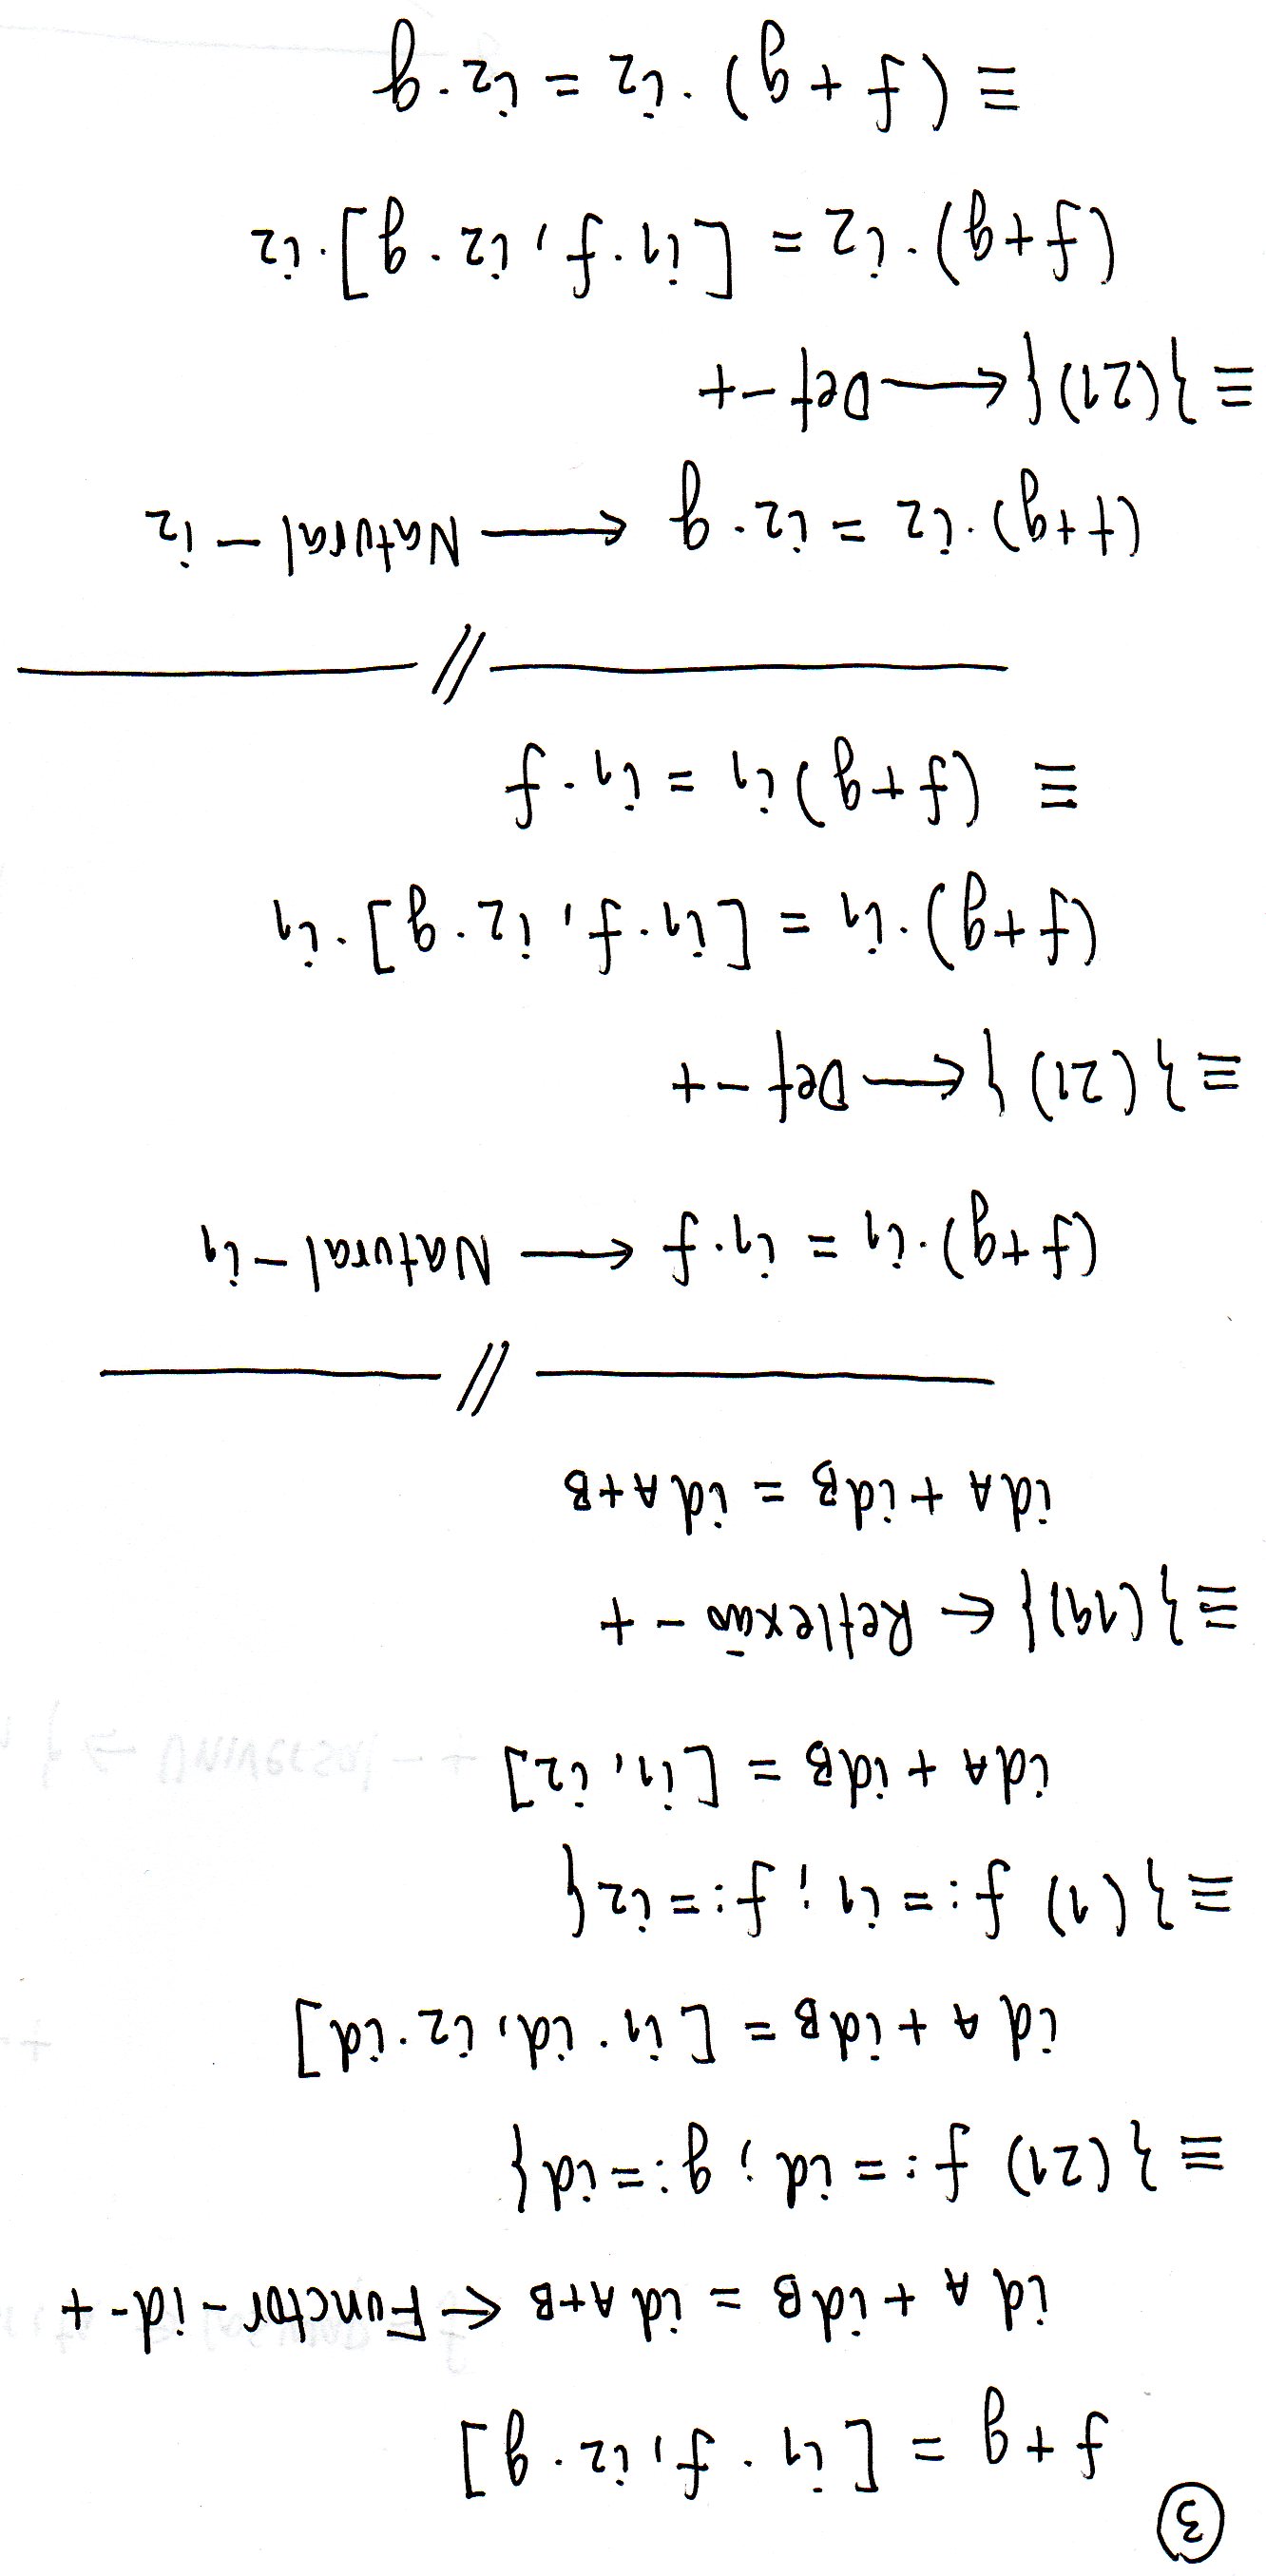 ③
f + g = [ i1 · f, i2 · g ]
id A + id B = id A+B ← Functor - id - +
≡ }(21) f := id ; g := id{
id A + id B = [ i1 · id, i2 · id ]
≡ }(1) f := i1 ; f := i2{
id A + id B = [ i1, i2 ]
≡ }(19){ ← Reflexão - +
id A + id B = id A+B
//
(f + g) · i1 = i1 · f ← Natural - i1
≡ }(21){ ← Def - +
(f + g) · i1 = [ i1 · f, i2 · g ] · i1
≡ (f + g) i1 = i1 · f
//
(f + g) · i2 = i2 · g ← Natural - i2
≡ }(21){ ← Def - +
(f + g) · i2 = [ i1 · f, i2 · g ] · i2
≡ (f + g) · i2 = i2 · g